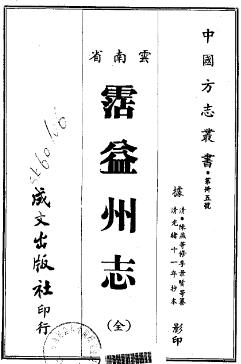 中國方志叢書・第卅五號
據
清・陳燕等修李景賢等纂
清光緒十一年抄本
影印
雲南省
霑益州志
(全)
成文出版社印行